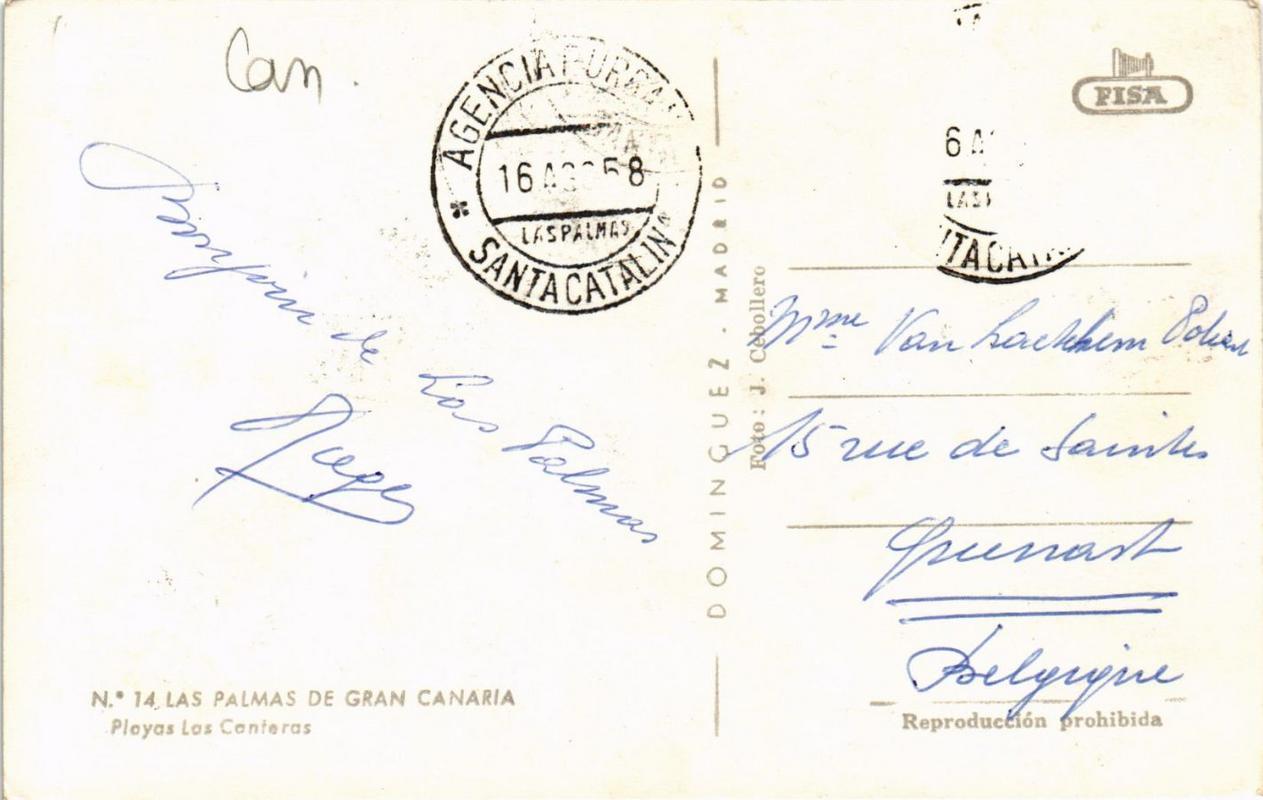 Can.
AGENCIA URBA
16 AGO 58
LAS PALMAS
SANTA CATALINA
Bonjour de Las Palmas
Roger
N.º 14 LAS PALMAS DE GRAN CANARIA
Playas Las Canteras
DOMINGUEZ - MADRID
Foto: J. Cebollero
FISA
6 A
LAS P
NTA CATA
Mme Van
15 rue de Saintes
Quenast
Belgique
Reproducción prohibida